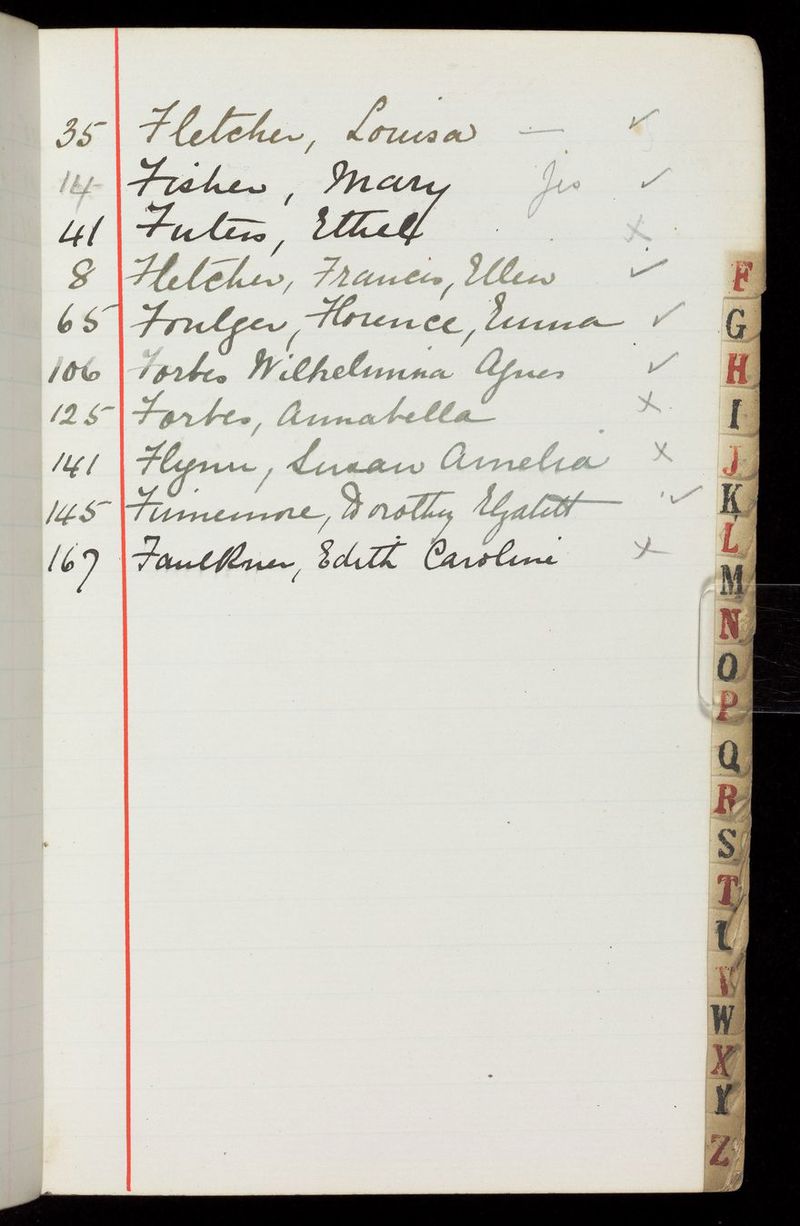 35 Fletcher, Louisa — ✓
14 Fisher, Mary Yes ✓
41 Futers, Ethel x
8 Fletcher, Francis, Ellen ✓
65 Foulger, Florence, Emma ✓
106 Forbes Wilhelmina Agnes ✓
125 Forbes, Annabella x
141 Flynn, Susan Amelia x
145 Finnemore, Dorothy ✓
167 Faulkner, Edith Caroline x
F
G
H
I
J
K
L
M
N
O
P
Q
R
S
T
U
V
W
X
Y
Z